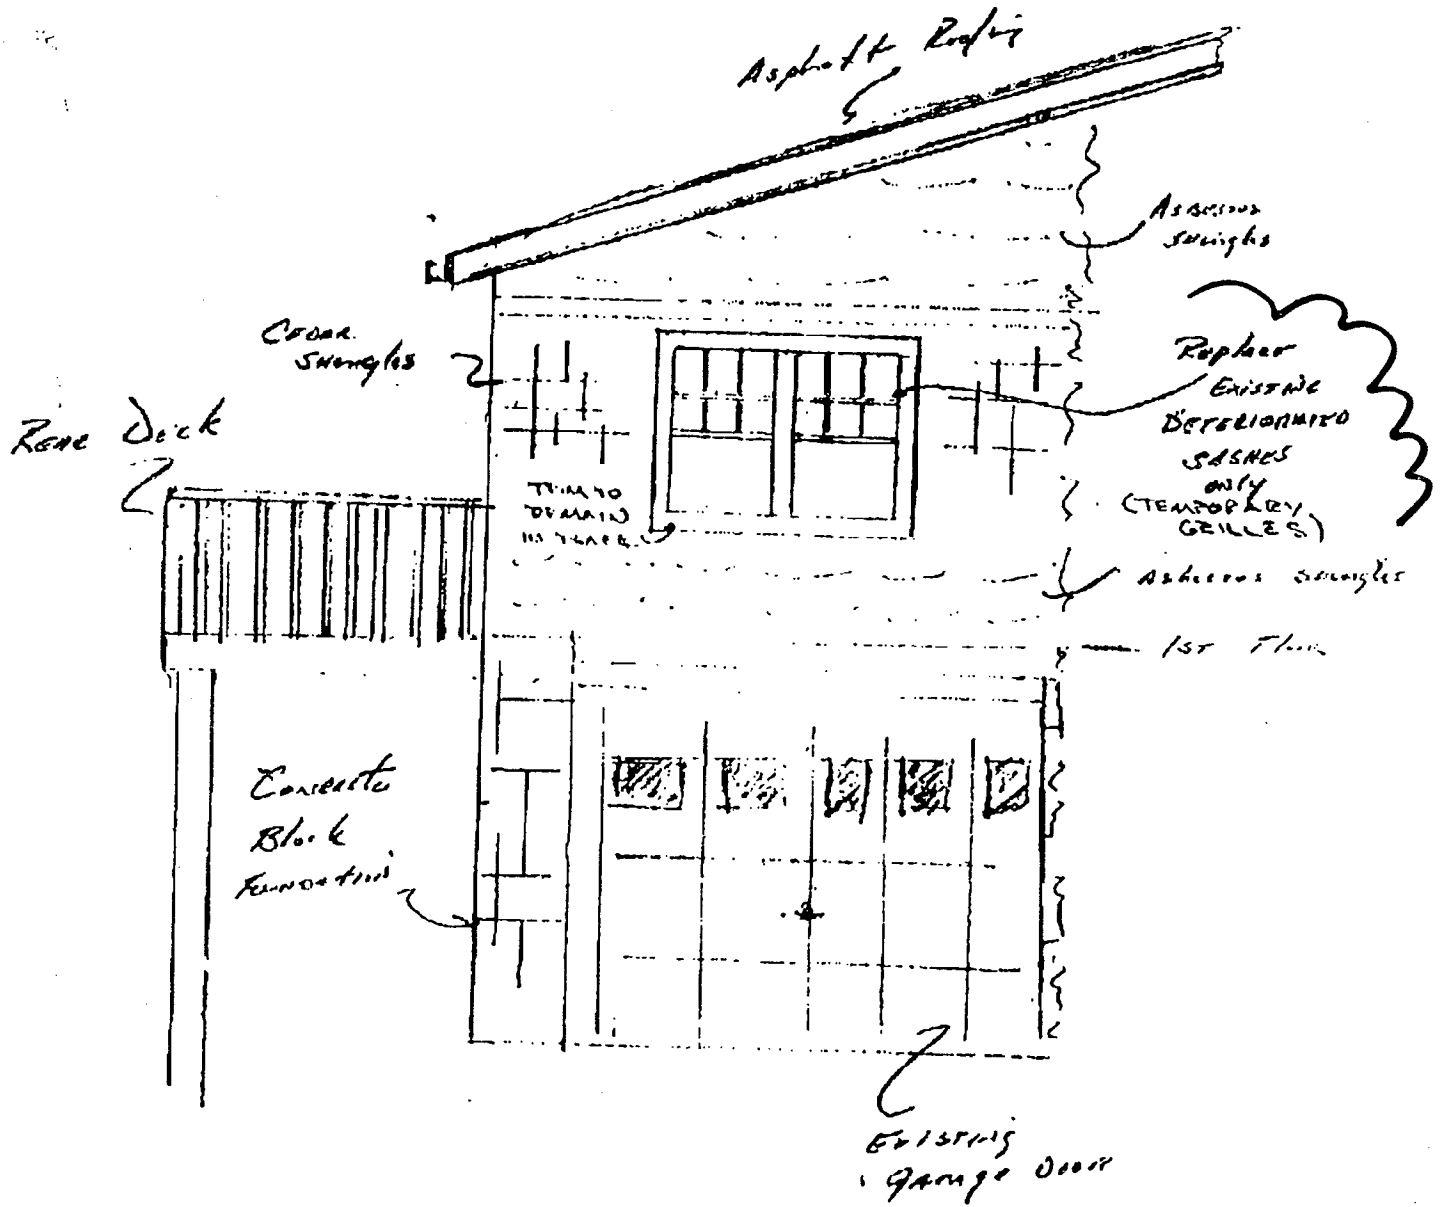 Asphalt Roofing
Asbestos
Shingles
Cedar
Shingles
Rear Deck
Replace
Existing
Deteriorated
Sashes
only
(Temporary
Grilles)
Trim to
remain
in place
Asbestos Shingles
1st Floor
Concrete
Block
Foundation
Existing
Garage Door